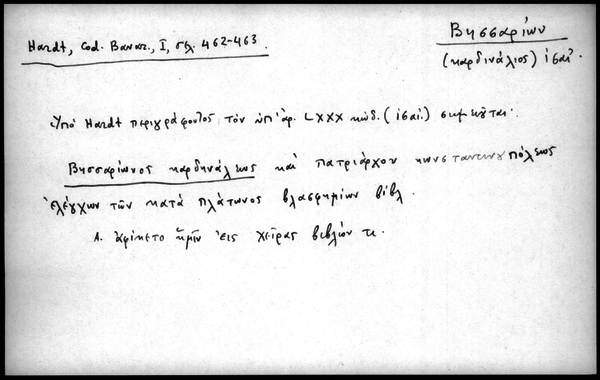 Hardt, Cod. Bavar., I, σελ. 462-463.
Βησσαρίων
(καρδινάλιος) ἰσαί.
Ὑπὸ Hardt περιγράφοντος τὸν ὑπ' ἀρ. LXXX κώδ. (ἰσαί.) σημειοῦται·
Βησσαρίωνος καρδηνάλεως καὶ πατριάρχου κωνσταντινουπόλεως
ἐλέγχων τῶν κατὰ πλάτωνος βλασφημίων βίβλ.
Α. ἀφίκετο ἡμῖν εἰς χεῖρας βιβλίον τι.